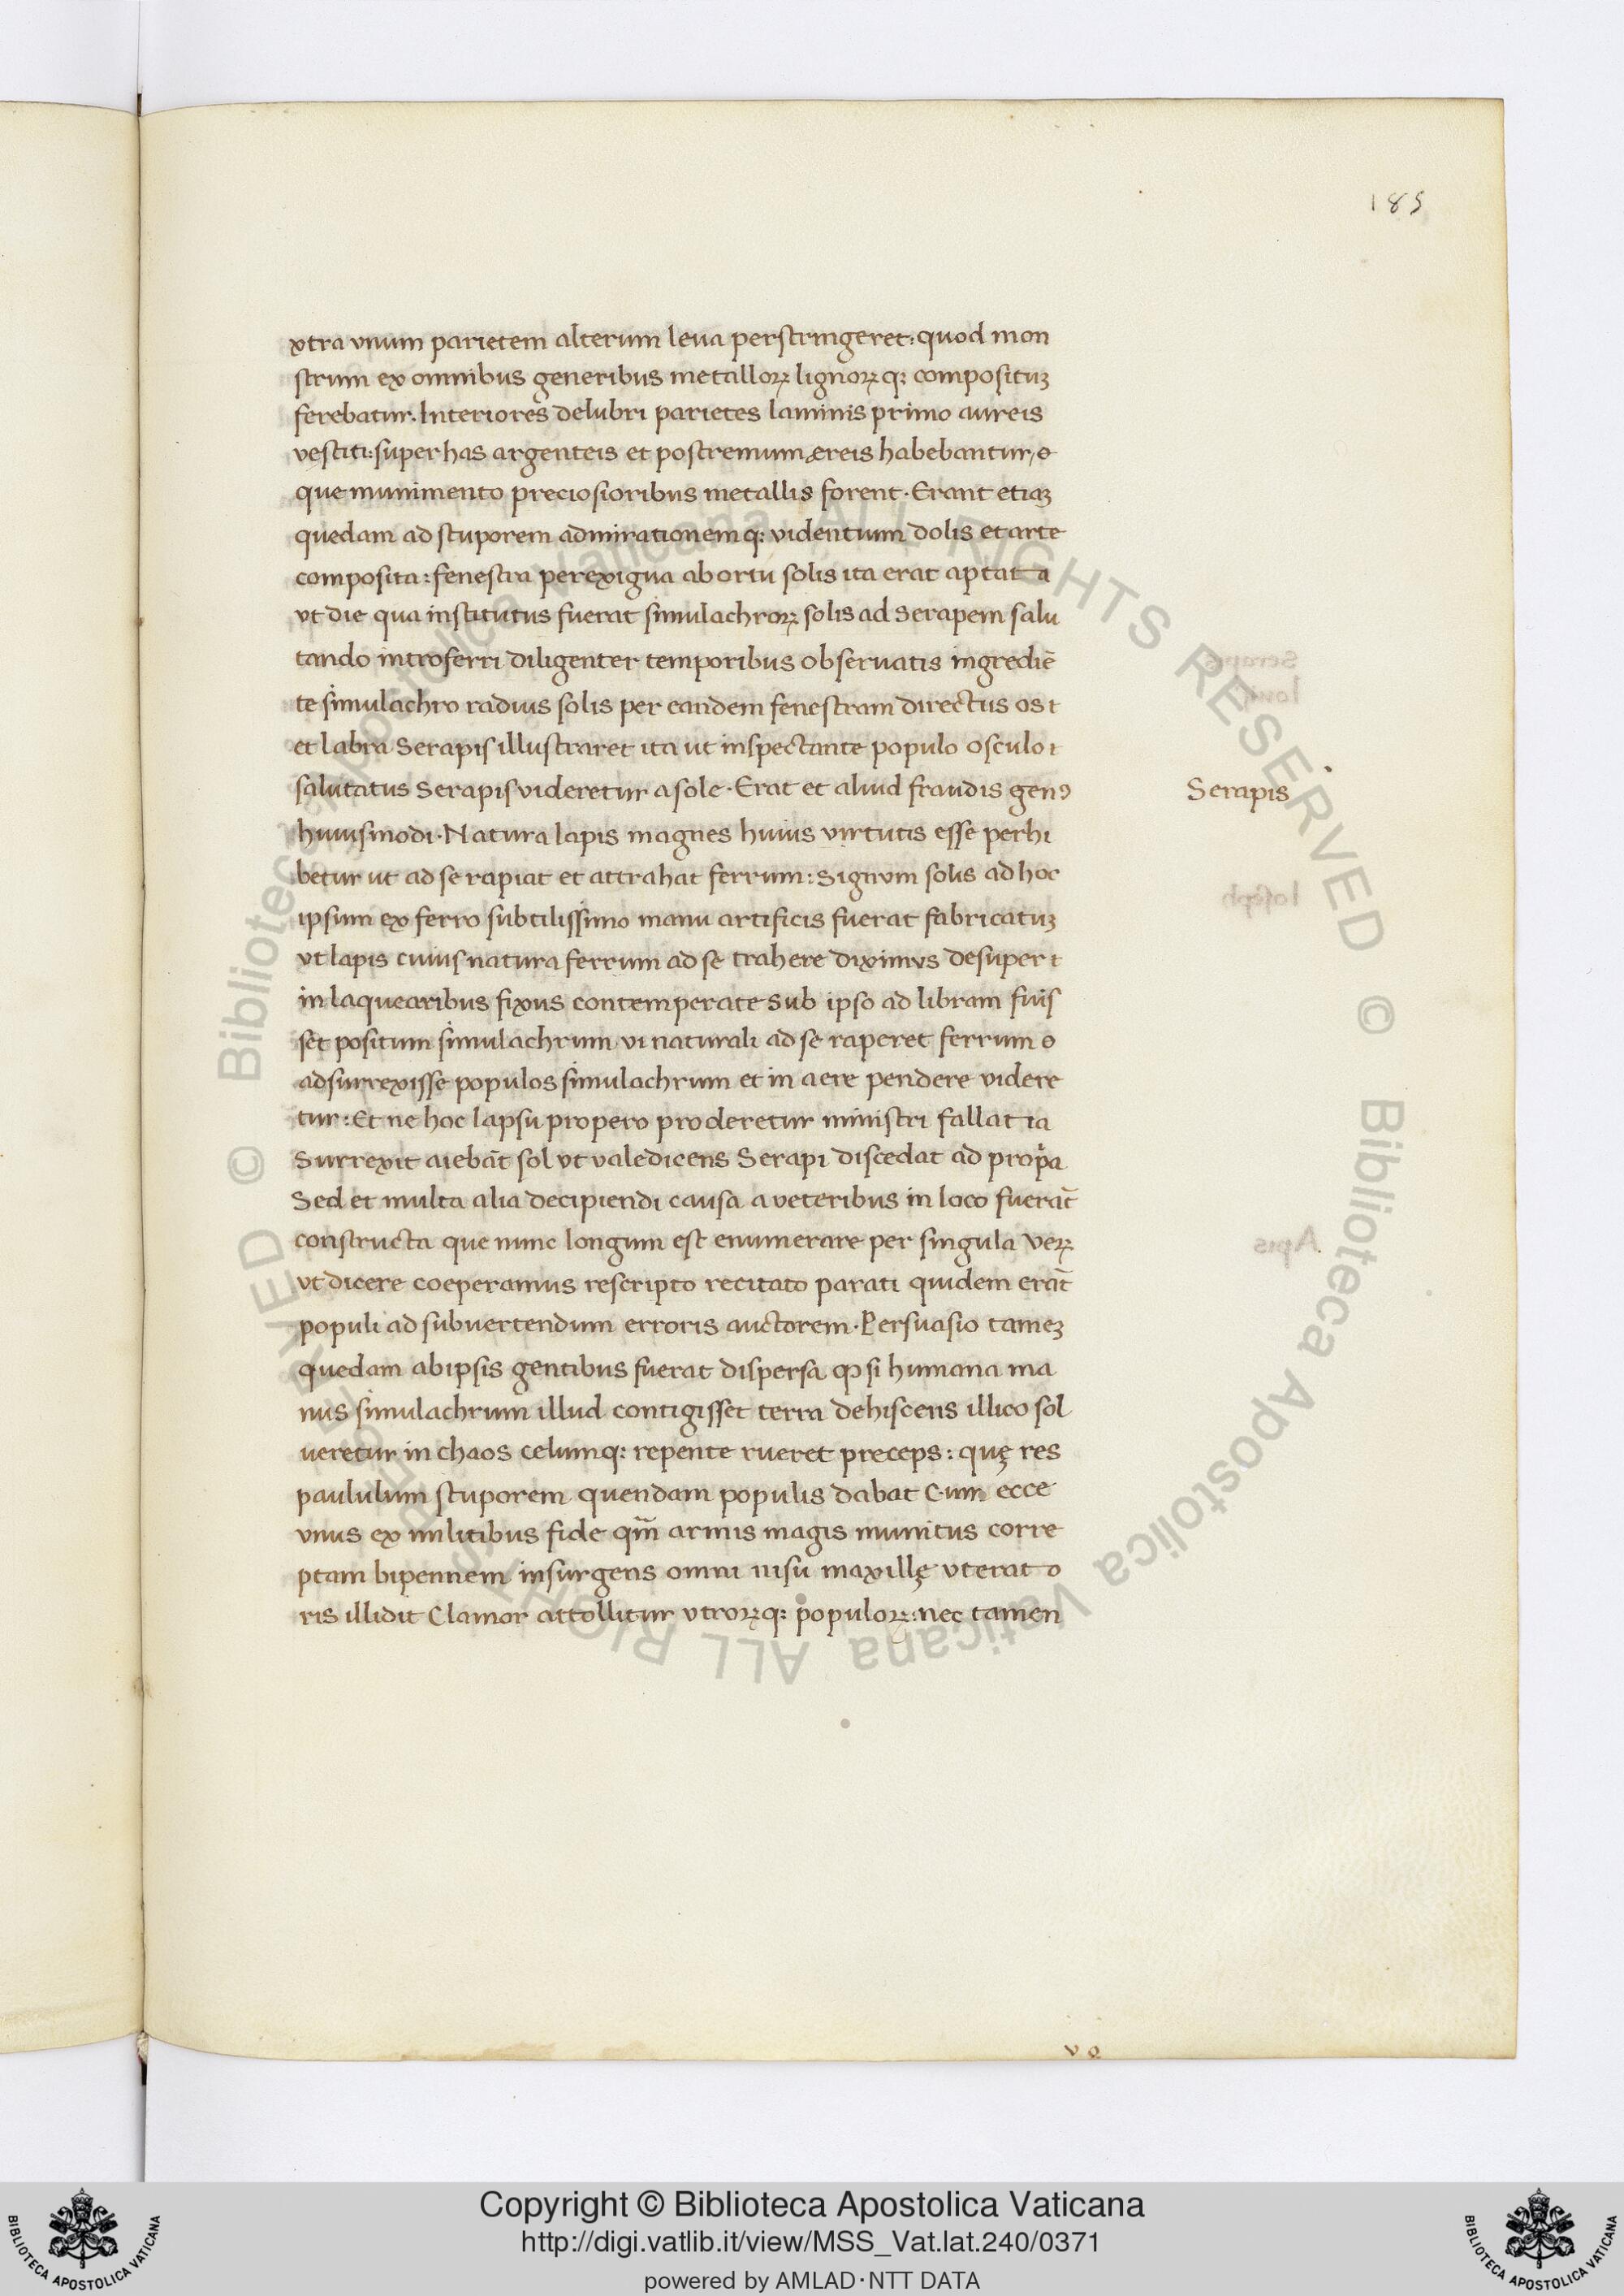 185
xtra vnum parietem alterum leua perstringeret: quod mon
strum ex omnibus generibus metalloꝝ lignoꝝq: composituꝫ
ferebatur. Interiores delubri parietes laminis primo aureis
vestiti: super has argenteis et postremum ęreis habebantur, e
que munimento preciosioribus metallis forent. Erant etiaꝫ
quedam ad stuporem admirationemq: videntium dolis et arte
composita: fenestra perexigua ab ortu solis ita erat aptata
vt die qua institutus fuerat simulachroꝝ solis ad Serapem salu
tando introferri diligenter temporibus obseruatis ingrediē
te simulachro radius solis per eandem fenestram directus os
et labra Serapis illustraret ita ut inspectante populo osculo
salutatus Serapis videretur a sole. Erat et aliud fraudis genꝰ
Serapis
huiusmodi. Natura lapis magnes huius virtutis esse perhi
betur ut ad se rapiat et attrahat ferrum: Signum solis ad hoc
ipsum ex ferro subtilissimo manu artificis fuerat fabricatuꝫ
vt lapis cuius natura ferrum ad se trahere diximus desuper
in laquearibus fixus contemperate sub ipso ad libram fuis
set positum simulachrum vi naturali ad se raperet ferrum
adsurrexisse populos simulachrum et in aere pendere videre
tur: Et ne hoc lapsu propero proderetur ministri fallatia
Surrexit aiebāt sol vt valedicens Serapi discedat ad prop̾a
Sed et multa alia decipiendi causa a veteribus in loco fuerāt
constructa que nunc longum est enumerare per singula Veꝝ
vt dicere coeperamus rescripto recitato parati quidem erāt
populi ad subuertendum erroris auctorem. Persuasio tameꝫ
quedam ab ipsis gentibus fuerat dispersa ꝙ si humana ma
nus simulachrum illud contigisset terra dehiscens illico sol
ueretur in chaos celumq: repente rueret preceps: quę res
paululum stuporem quendam populis dabat Cum ecce
vnus ex militibus fide qm̄ armis magis munitus corre
ptam bipennem insurgens omni nisu maxillę vterat o
ris illidit Clamor attollitur vtroꝝq: populoꝝ: nec tamen
Copyright © Biblioteca Apostolica Vaticana
http://digi.vatlib.it/view/MSS_Vat.lat.240/0371
powered by AMLAD·NTT DATA